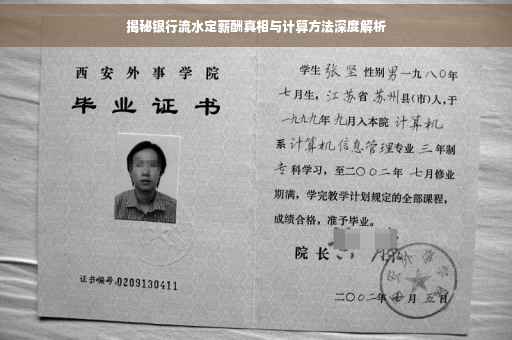 揭秘银行流水定薪酬真相与计算方法深度解析
西安外事学院
毕业证书
证书编号:0209130411
学生 张坚 性别 男 一九八〇年
七月生，江苏省 苏州县(市)人,于
一九九九年 九月入本院 计算机
系 计算机信息管理专业 三 年制
专科学习，至二〇〇二年 七月修业
期满，学完教学计划规定的全部课程，
成绩合格，准予毕业。
院 长
二〇〇二年 七 月 五 日